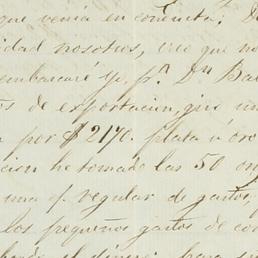 que venia en conducta; D
idad nosotros, creo que no
embarcaré yo pr. Dn Ba
os de exportacion, giro un
por $2170. plata ú oro
cion he tomado las 50 on
una q. regular de gastos,
los pequeños gastos de co